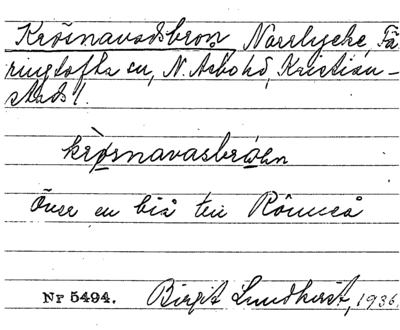 Krösnavadsbron, Norrlycke, Fä
ringtofta sn, N. Åsbo hd, Kristian-
stads l.
krøsnavasbroən
Över en biå till Rönneå
Nr 5494. Birgit Lundkvist, 1936.